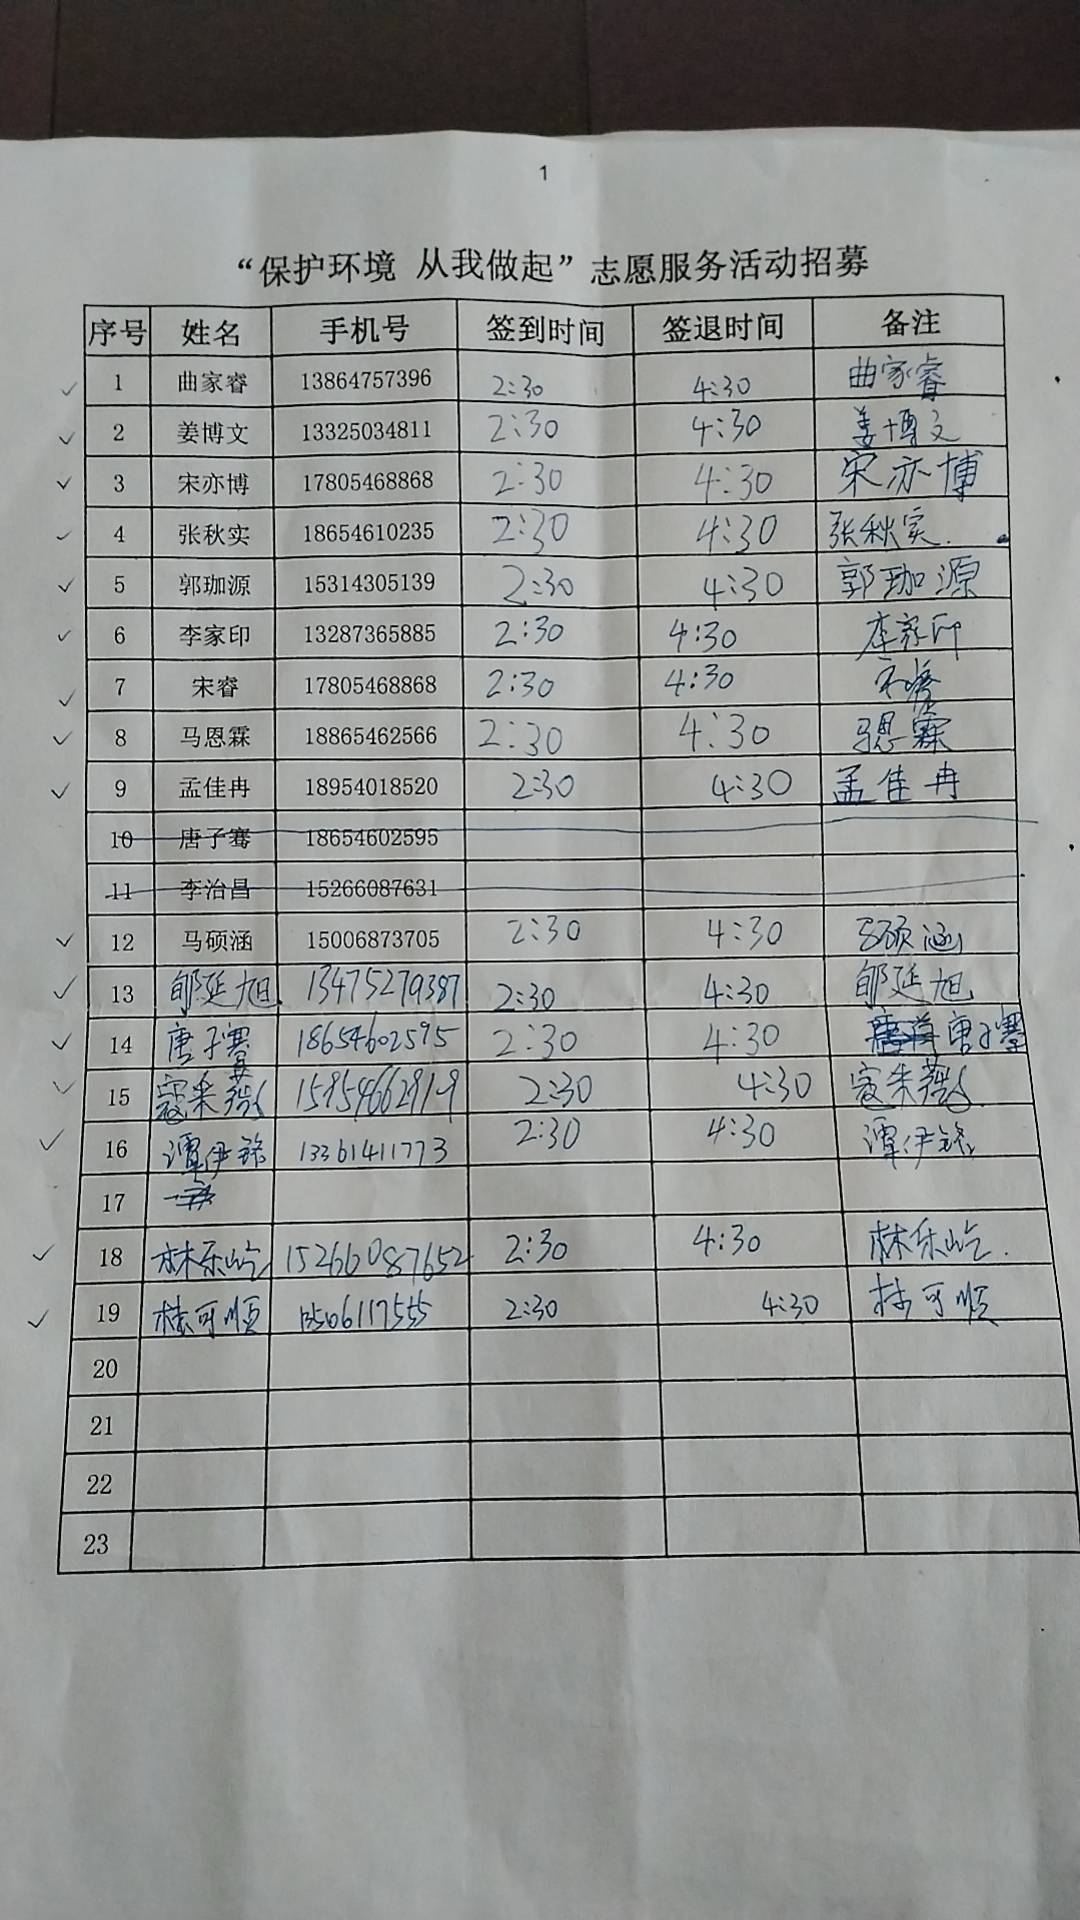 1
“保护环境 从我做起”志愿服务活动招募
序号 姓名 手机号 签到时间 签退时间 备注
1 曲家睿 13864757396 2:30 4:30 曲家睿
2 姜博文 13325034811 2:30 4:30 姜博文
3 宋亦博 17805468868 2:30 4:30 宋亦博
4 张秋实 18654610235 2:30 4:30 张秋实.
5 郭珈源 15314305139 2:30 4:30 郭珈源
6 李家印 13287365885 2:30 4:30 李家印
7 宋睿 17805468868 2:30 4:30 宋睿
8 马恩霖 18865462566 2:30 4:30 马恩霖
9 孟佳冉 18954018520 2:30 4:30 孟佳冉
10 唐子骞 18654602595
11 李治昌 15266087631
12 马硕涵 15006873705 2:30 4:30 马硕涵
13 郇延旭 13475279387 2:30 4:30 郇延旭
14 唐子骞 18654602595 2:30 4:30 唐子骞
15 2:30 4:30
16 谭伊铭 13361411773 2:30 4:30 谭伊铭
17
18 林乐屹 15266087652 2:30 4:30 林乐屹.
19 可顺 13506117555 2:30 4:30 可顺
20
21
22
23